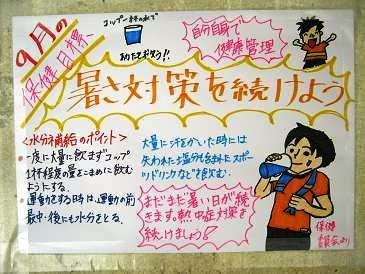 9月の
保健目標
コップ一杯の水で
のどをおそう!!
自分自身で
健康管理
暑さ対策を続けよう
<水分補給のポイント>
一度に大量に飲まずコップ
1杯程度の量をこまめに飲む
ようにする。
運動をする時は、運動の前
最中・後にも水分をとる。
大量に汗をかいた時には
失われた塩分も含まれたスポー
ツドリンクなどを飲む。
まだまだ暑い日が続
きます。熱中症対策を
続けましょう!
保健
委員会より